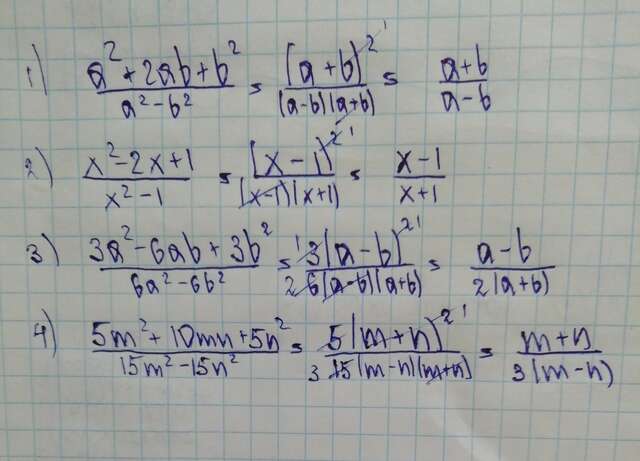 1) (a² + 2ab + b²)/(a² - b²) = (a + b)²¹/((a-b)(a+b)) = (a+b)/(a-b)
2) (x² - 2x + 1)/(x² - 1) = (x - 1)²¹/((x-1)(x+1)) = (x-1)/(x+1)
3) (3a² - 6ab + 3b²)/(6a² - 6b²) = ¹3(a-b)²¹/(2 6(a-b)(a+b)) = (a-b)/(2(a+b))
4) (5m² + 10mn + 5n²)/(15m² - 15n²) = 5(m+n)²¹/(3 15(m-n)(m+n)) = (m+n)/(3(m-n))